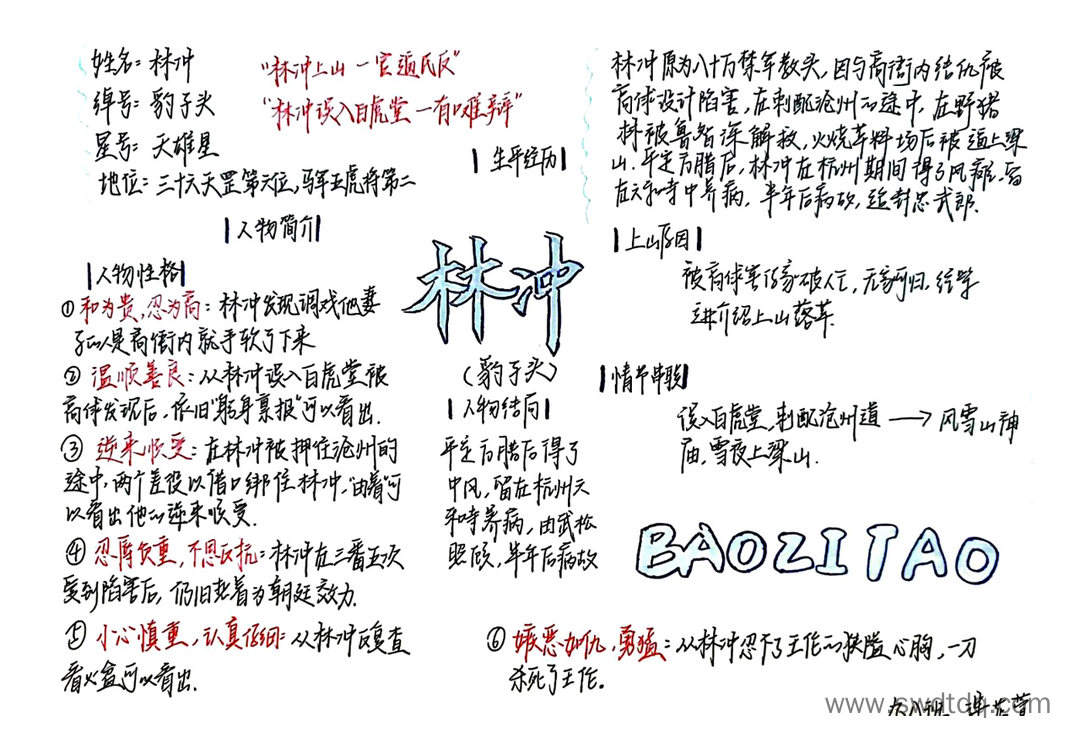 姓名：林冲
绰号：豹子头
星号：天雄星
地位：三十六天罡第六位，马军五虎将第二
"林冲上山—官逼民反"
"林冲误入白虎堂—有口难辩"
人物简介
生平经历
林冲原为八十万禁军教头，因与高衙内结仇被
高俅设计陷害，在刺配沧州的途中，在野猪
林被鲁智深解救，火烧草料场后被逼上梁
山．平定方腊后，林冲在杭州期间得了风瘫，留
在六和寺中养病，半年后病故，追封忠武郎．
人物性格
①和为贵，忍为高：林冲发现调戏他妻
子的人是高衙内就手软了下来
② 温顺善良：从林冲误入白虎堂被
高俅发现后，依旧"躬身禀报"可以看出．
③ 逆来顺受：在林冲被押往沧州的
途中，两个差役以借口绑住林冲，"由着"可
以看出他的逆来顺受．
④ 忍辱负重，不思反抗：林冲在三番五次
受到陷害后，仍旧想着为朝廷效力．
⑤ 小心慎重，认真仔细：从林冲反复查
看火盆可以看出．
林冲
（豹子头）
人物结局
平定方腊后得了
中风，留在杭州六
和寺养病，由武松
照顾，半年后病故
上山原因
被高俅害得家破人亡，无家可归，经
进介绍上山落草．
情节串联
误入白虎堂，刺配沧州道 → 风雪山神
庙，雪夜上梁山．
BAOZITAO
⑥ 嫉恶如仇，勇猛：从林冲忍不了王伦的狭隘心胸，一刀
杀死了王伦．
www.swdtdq.com